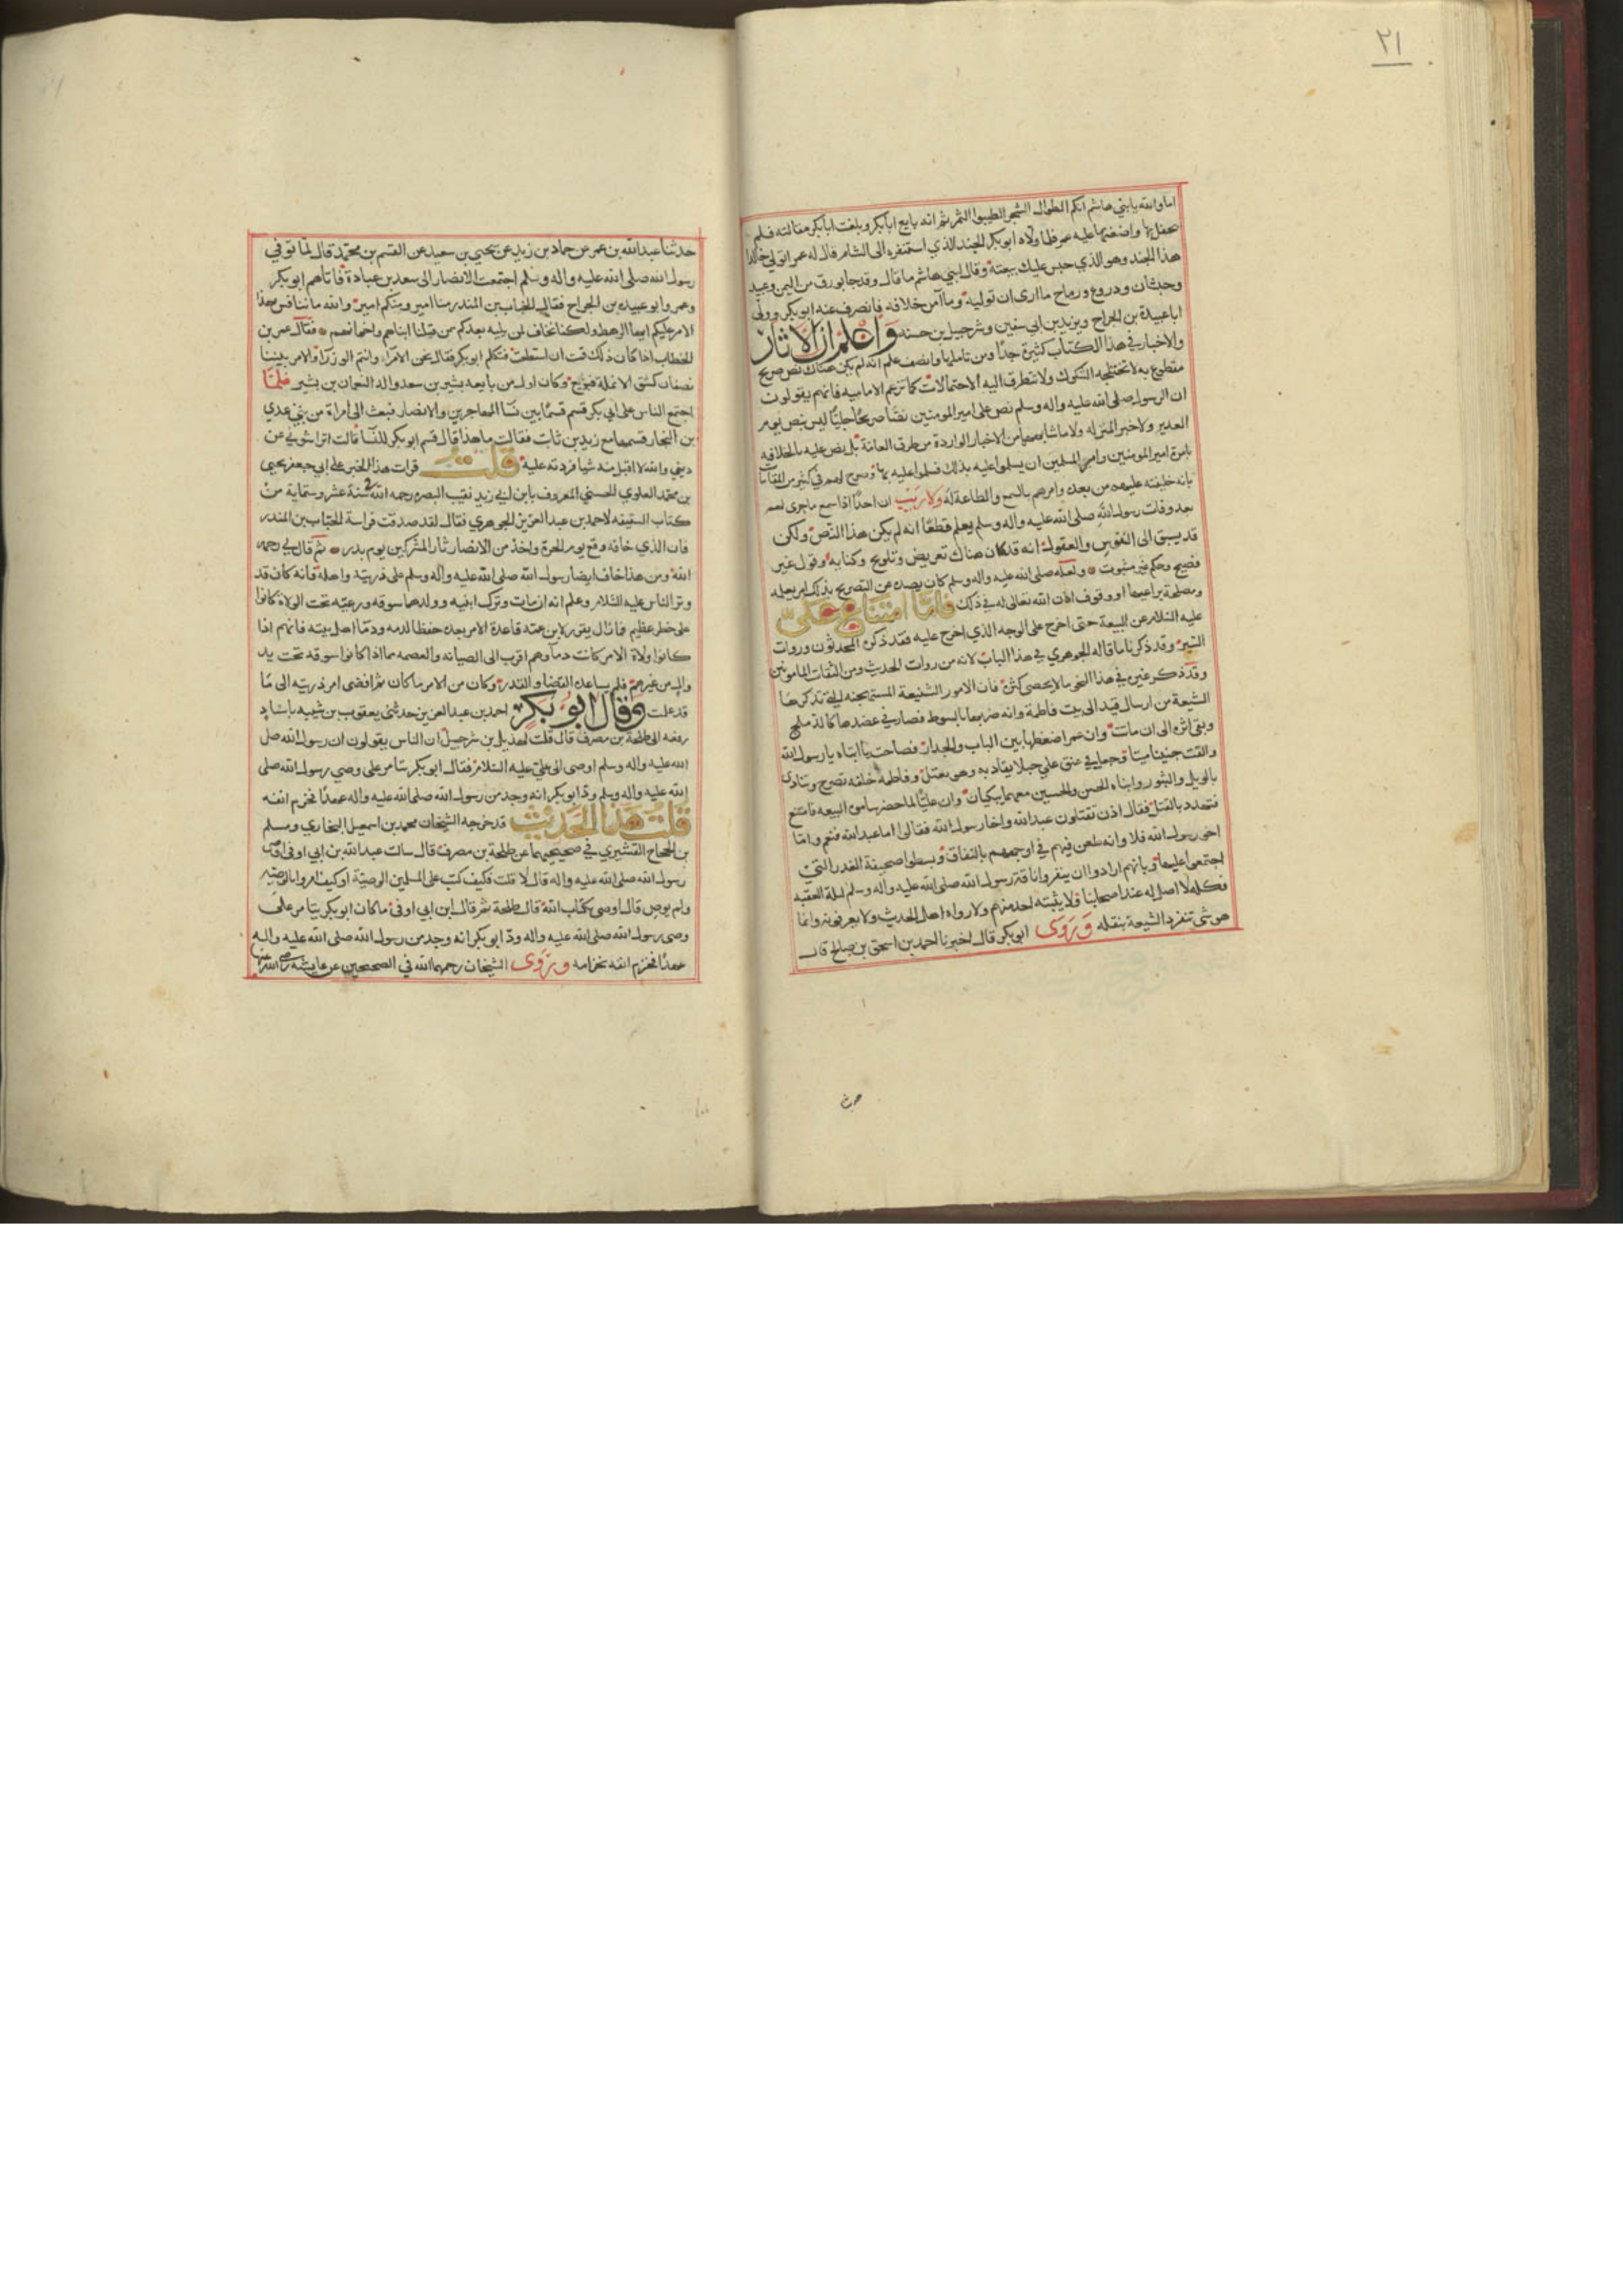 ٢١
اما والله يا بني هاشم انكم الطوال الشجر الطيبوا الثمر ثم انه بايع ابا بكر وبلغت ابا بكر مقالته فلم
يحفل بها واضغنها عليه عمر فلما ولاه ابو بكر الجند الذي استنفره الى الشام قال له عمر اتولي خالدا
هذا الجند وهو الذي حبس عليك بيعته وقال لبني هاشم ما قال وقد جا بورق من اليمن وعبيد
وحبشان ودروع ورماح ما ارى ان توليه وما آمن خلافه فانصرف عنه ابو بكر وولى
ابا عبيدة بن الجراح ويزيد بن ابي سفين وشرحبيل بن حسنه وَاعْلَمْ ان الاثار
والاخبار في هذا الكتاب كثيرة جدًا ومن تاملها وانصف علم انه لم يكن هناك نص صريح
مقطوع به لا تختلجه الشكوك ولا تتطرق اليه الاحتمالات كما تزعم الاماميه فانهم يقولون
ان الرسول صلى الله عليه واله وسلم نص على امير المومنين نصًا صريحًا جليًا ليس بنص يوم
الغدير ولا خبر المنزله ولا ما شابههما من الاخبار الواردة من طرق العامة بل نص عليه بالخلافه
بامرة امير المومنين وامر المسلمين ان يسلموا عليه بذلك فسلموا عليه بها وصرح لهم في كثير من المقامات
بانه خليفته عليهم من بعده وامرهم بالسمع والطاعة له ولا ريب ان احدًا اذا سمع ما جرى لهم
بعد وفات رسول الله صلى الله عليه واله وسلم يعلم قطعًا انه لم يكن هذا النص ولكن
قد يسبق الى النفوس والعقول انه قد كان هناك تعريض وتلويح وكنايه وقول غير
فصيح وحكم غير مثبوت ولعله صلى الله عليه واله وسلم كان يصده عن التصريح بذلك امر يعلمه
ومصلحة يراعيها او وقوف اذن الله تعالى له في ذلك فامّا امتناع علىّ
عليه السلام عن البيعة حتى اخرج على الوجه الذي اخرج عليه فقد ذكره المحدثون وروات
السير وقد ذكرنا ما قاله الجوهري في هذا الباب لانه من روات الحديث ومن الثقات المامونين
وقد ذكر غيره في هذا النحو ما لا يحصى كثرة فان الامور الشنيعة المستهجنه التي تذكرها
الشيعة من ارسال قنفد الى بيت فاطمة وانه ضربها بالسوط فصار في عضدها كالدملج
وبقى اثره الى ان ماتت وان عمر اضغطها بين الباب والجدار فصاحت يا ابتاه يا رسول الله
والقت جنينا ميتا وجعل في عنق علي حبلا يقاد به وهو يعتل وفاطمة خلفه تصرخ وتنادى
بالويل والثبور وابناه الحسن والحسين معهما يبكيان وان عليًا لما احضر سامو البيعه فامتنع
فتهدد بالقتل فقال اذن تقتلون عبد الله واخا رسول الله فقالوا اما عبد الله فنعم واما
اخو رسول الله فلا وانه طعن فيهم في اوجههم بالنفاق وسطوا صحيفة الغدر التي
اجتمعوا عليها وبانهم ارادوا ان ينفروا ناقة رسول الله صلى الله عليه واله وسلم ليلة العقبه
فكله لا اصل له عند اصحابنا ولا يثبته احد منهم ولا رواه اهل الحديث ولا يعرفونه وانما
هو شى تنفرد الشيعة بنقله وَرَوى ابي بكر قال اخبرنا احمد بن اسحق بن صالح قال
حدثنا عبد الله بن عمر عن حماد بن زيد عن يحيى بن سعيد عن القسم بن محمّد قال لما توفي
رسول الله صلى الله عليه واله وسلم اجتمعت الانصار الى سعد بن عبادة فاتاهم ابو بكر
وعمر وابو عبيده بن الجراح فقال الحباب بن المنذر منا امير ومنكم امير والله ما ننافس هذا
الامر عليكم ايها الرهط ولكنا نخاف ان يليه بعدكم من قتلنا ابناهم واخوانهم فقال عمر بن
الخطاب اذا كان ذلك فمت ان استطعت فتكلم ابو بكر فقال نحن الامرا وانتم الوزرا والامر بيننا
نصفان كشق الانملة فبويع وكان اول من بايعه بشير بن سعد والد النعمان بن بشير فلمّا
اجتمع الناس على ابي بكر قسم قسمًا بين نسا المهاجرين والانصار فبعث الى امراة من بني عدي
بن النجار قسمها مع زيد بن ثابت فقالت ما هذا قال قسم ابو بكر للنسا قالت اتراشوني عن
ديني والله لا اقبل منه شيا فردته عليه قلت قرات هذا الخبر على ابي جعفر يحيى
بن محمد العلوي الحسني المعروف بابن ابي زيد نقيب البصره رحمه الله سنة عشر وستماية من
كتاب السقيفه لاحمد بن عبد العزيز الجوهري فقال لقد صدقت فراسة الحباب بن المنذر
فان الذي خافه وقع يوم الحرة واخذ من الانصار ثار المشركين يوم بدر ثم قال لي رحمه
الله ومن هذا خاف ايضا رسول الله صلى الله عليه واله وسلم على ذريته واهله فانه كان قد
وتر الناس عليه السلام وعلم انه ان مات وترك ابنته وولدها سوقه ورعيّه تحت الولاة كانوا
على خطر عظيم فما زال يقرر لابن عمه قاعدة الامر بعده حفظا لدمه ودما اهل بيته فانهم اذا
كانوا ولاة الامر كانت دماوهم اقرب الى الصيانه والعصمه مما اذا كانوا سوقه تحت يد
وال من غيرهم فلم يساعده القضا والقدر وكان من الامر ما كان ثم افضى امر ذريته الى ما
قد علمت وَقال ابو بكر احمد بن عبد العزيز حدثنى يعقوب بن شيبه باسناد
رفعه الى طلحة بن مصرف قال قلت لهذيل بن شرحبيل ان الناس يقولون ان رسول الله صلى
الله عليه واله وسلم اوصى الى علي عليه السلام فقال ابو بكر يتامر على وصي رسول الله صلى
الله عليه واله وسلم ودّ ابو بكر انه وجد من رسول الله صلى الله عليه واله عهدًا فخزم انفه
قلت هذا الحديث قد خرجه الشيخان محمد بن اسمعيل البخاري ومسلم
بن الحجاج القشيري في صحيحيهما عن طلحة بن مصرف قال سالت عبد الله بن ابي اوفى اوصى
رسول الله صلى الله عليه واله قال لا قلت فكيف كتب على المسلمين الوصيّة او كيف امروا بالوصيه
ولم يوص قال اوصى بكتاب الله قال طلحة ثم قال ابن ابي اوفى ما كان ابو بكر يتامر على
وصى رسول الله صلى الله عليه واله ودّ ابو بكر انه وجد من رسول الله صلى الله عليه واله
عهدًا فخزم انفه بخزامه وَرَوى الشيخان رحمهما الله في الصحيحين عن عايشه رضي الله عنها